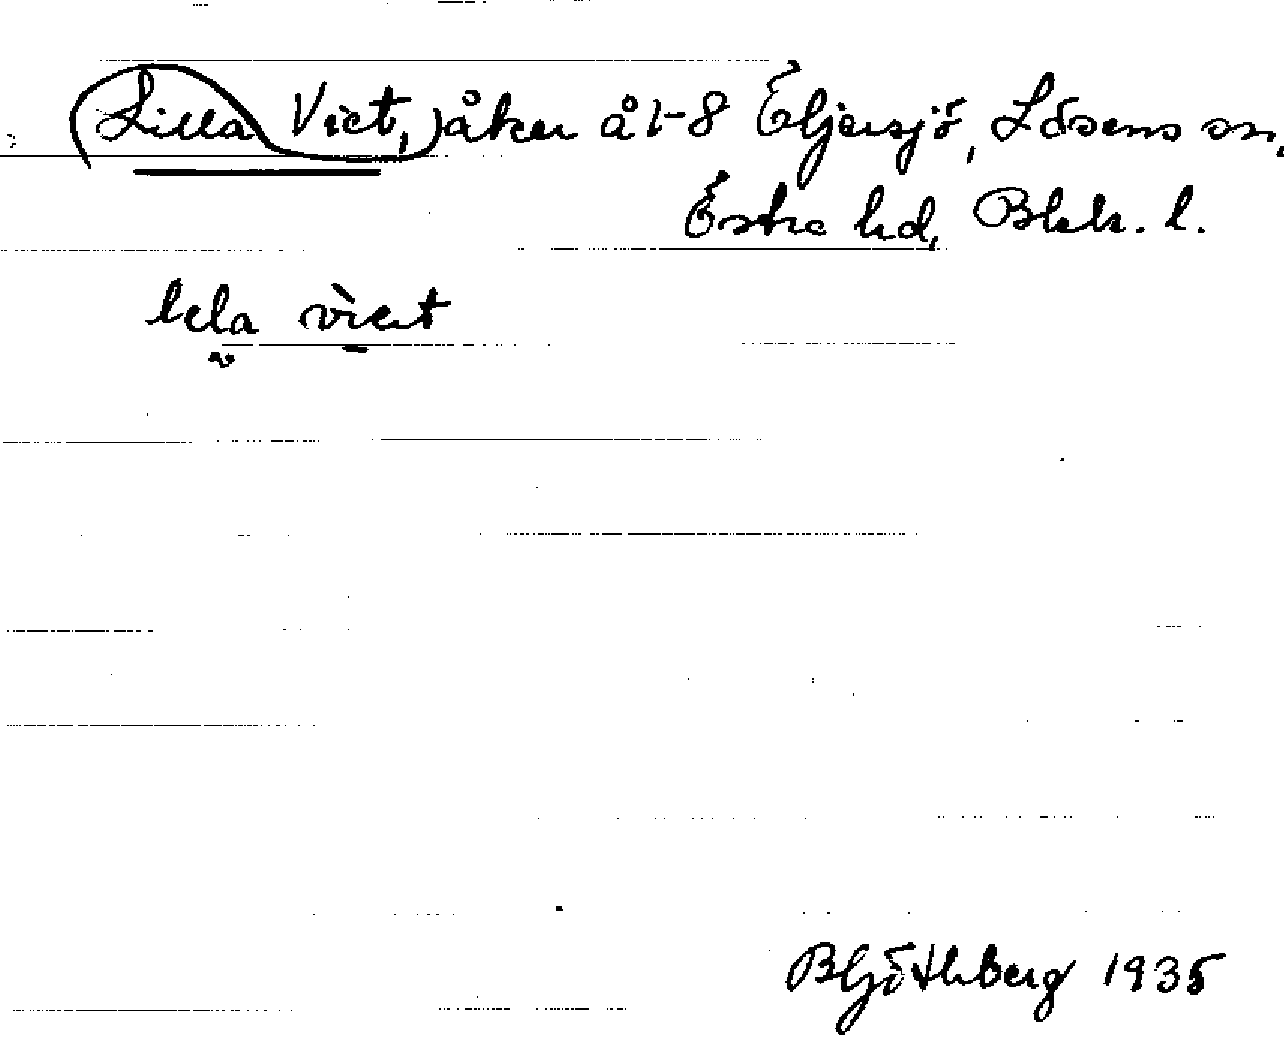 Lilla Vret, åker å 1-8 Öljersjö, Lösens sn,
Östra hd, Blek. l.
lela vret
BGöthberg 1935